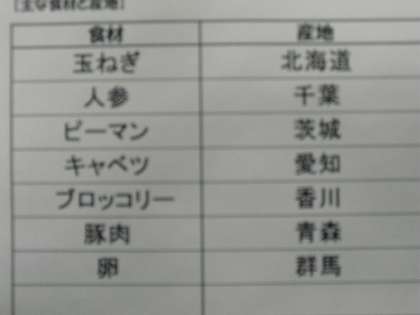 ［主な食材と産地］
食材 産地
玉ねぎ 北海道
人参 千葉
ピーマン 茨城
キャベツ 愛知
ブロッコリー 香川
豚肉 青森
卵 群馬